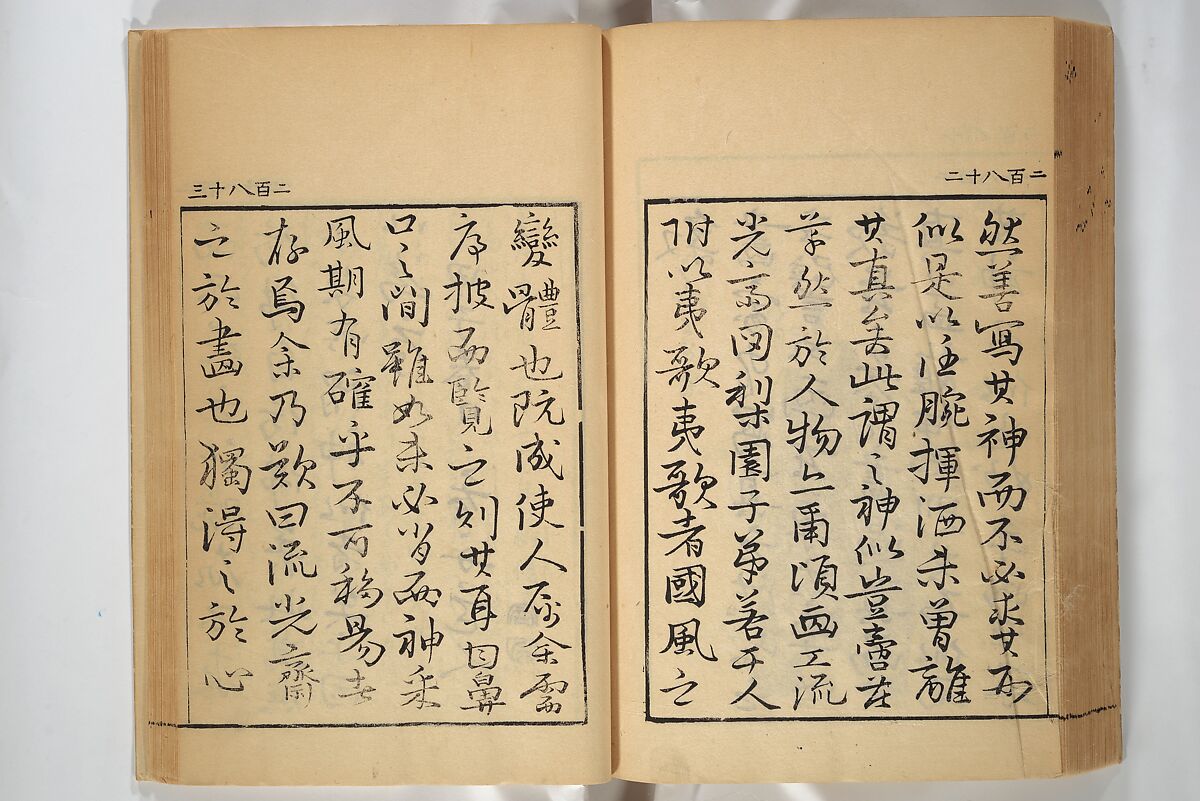 二百八十二
然善寫其神而不必求其形
似是以任腕揮洒未曽離
其真矣此謂之神似豈啻花
草然於人物亦爾頃画工流
光斎図梨園子弟若干人
附以夷歌夷歌者國風之
二百八十三
變體也既成使人余需
序披而覽之則其耳目鼻
口之間雖如未必肖而神采
風期有確乎不可移易者
存焉余乃歎曰流光齋
之於畫也獨得之於心